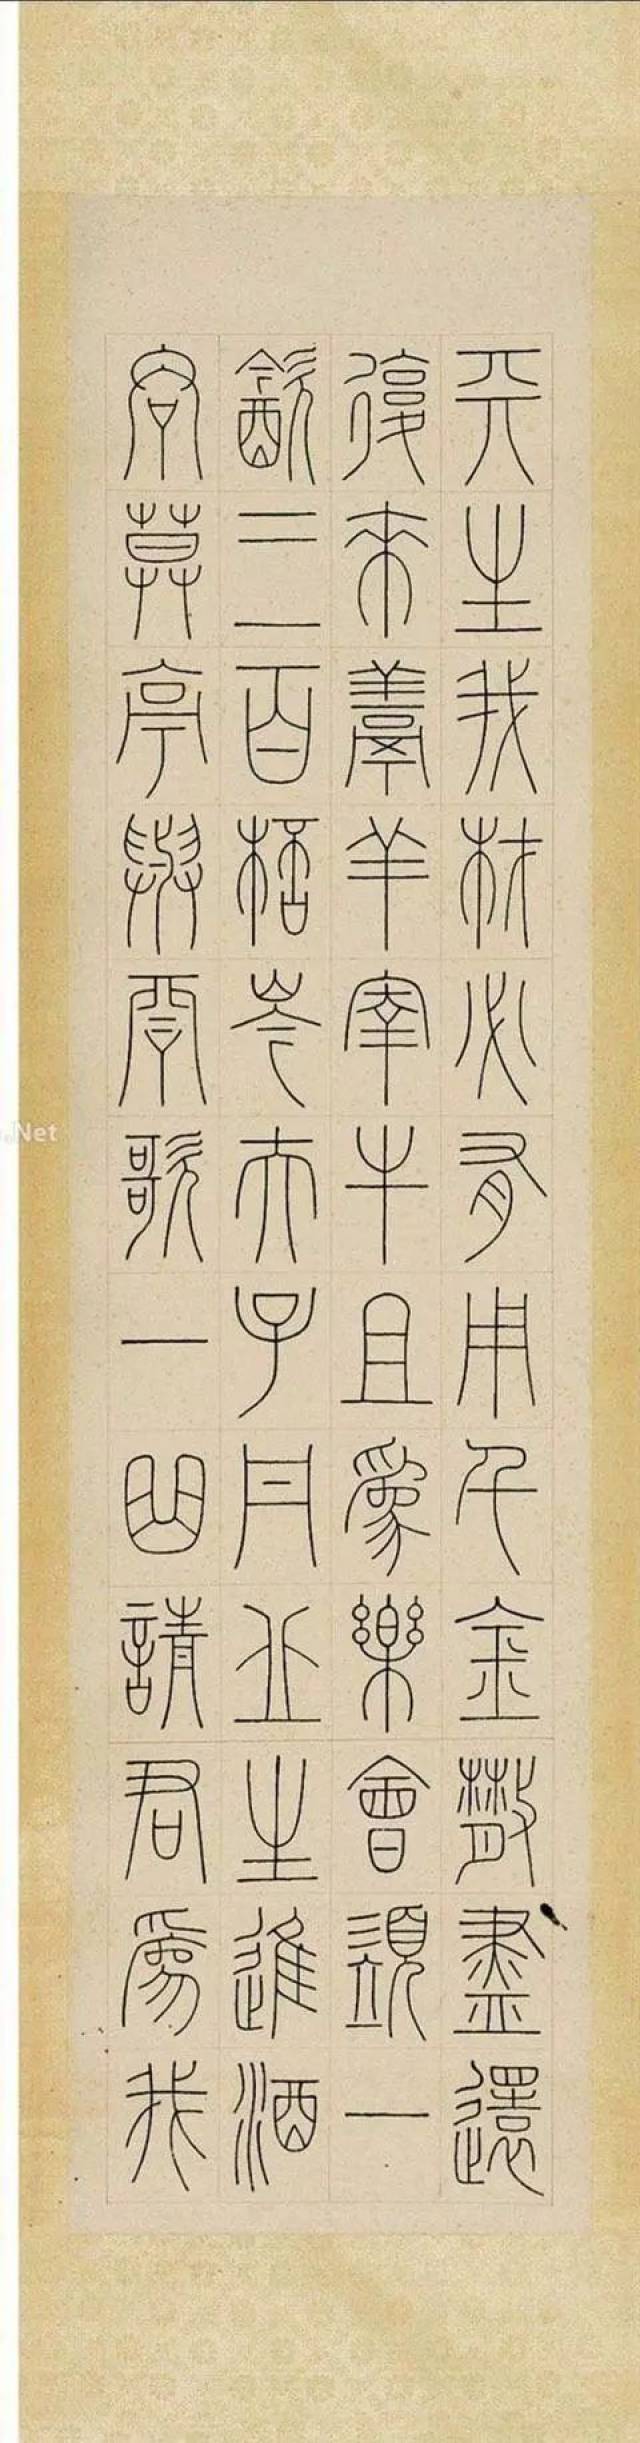 天生我材必有用千金散盡還
復來烹羊宰牛且爲樂會須一
飲三百桮岑夫子丹丘生進酒
君莫亭與君歌一曲請君爲我
.Net